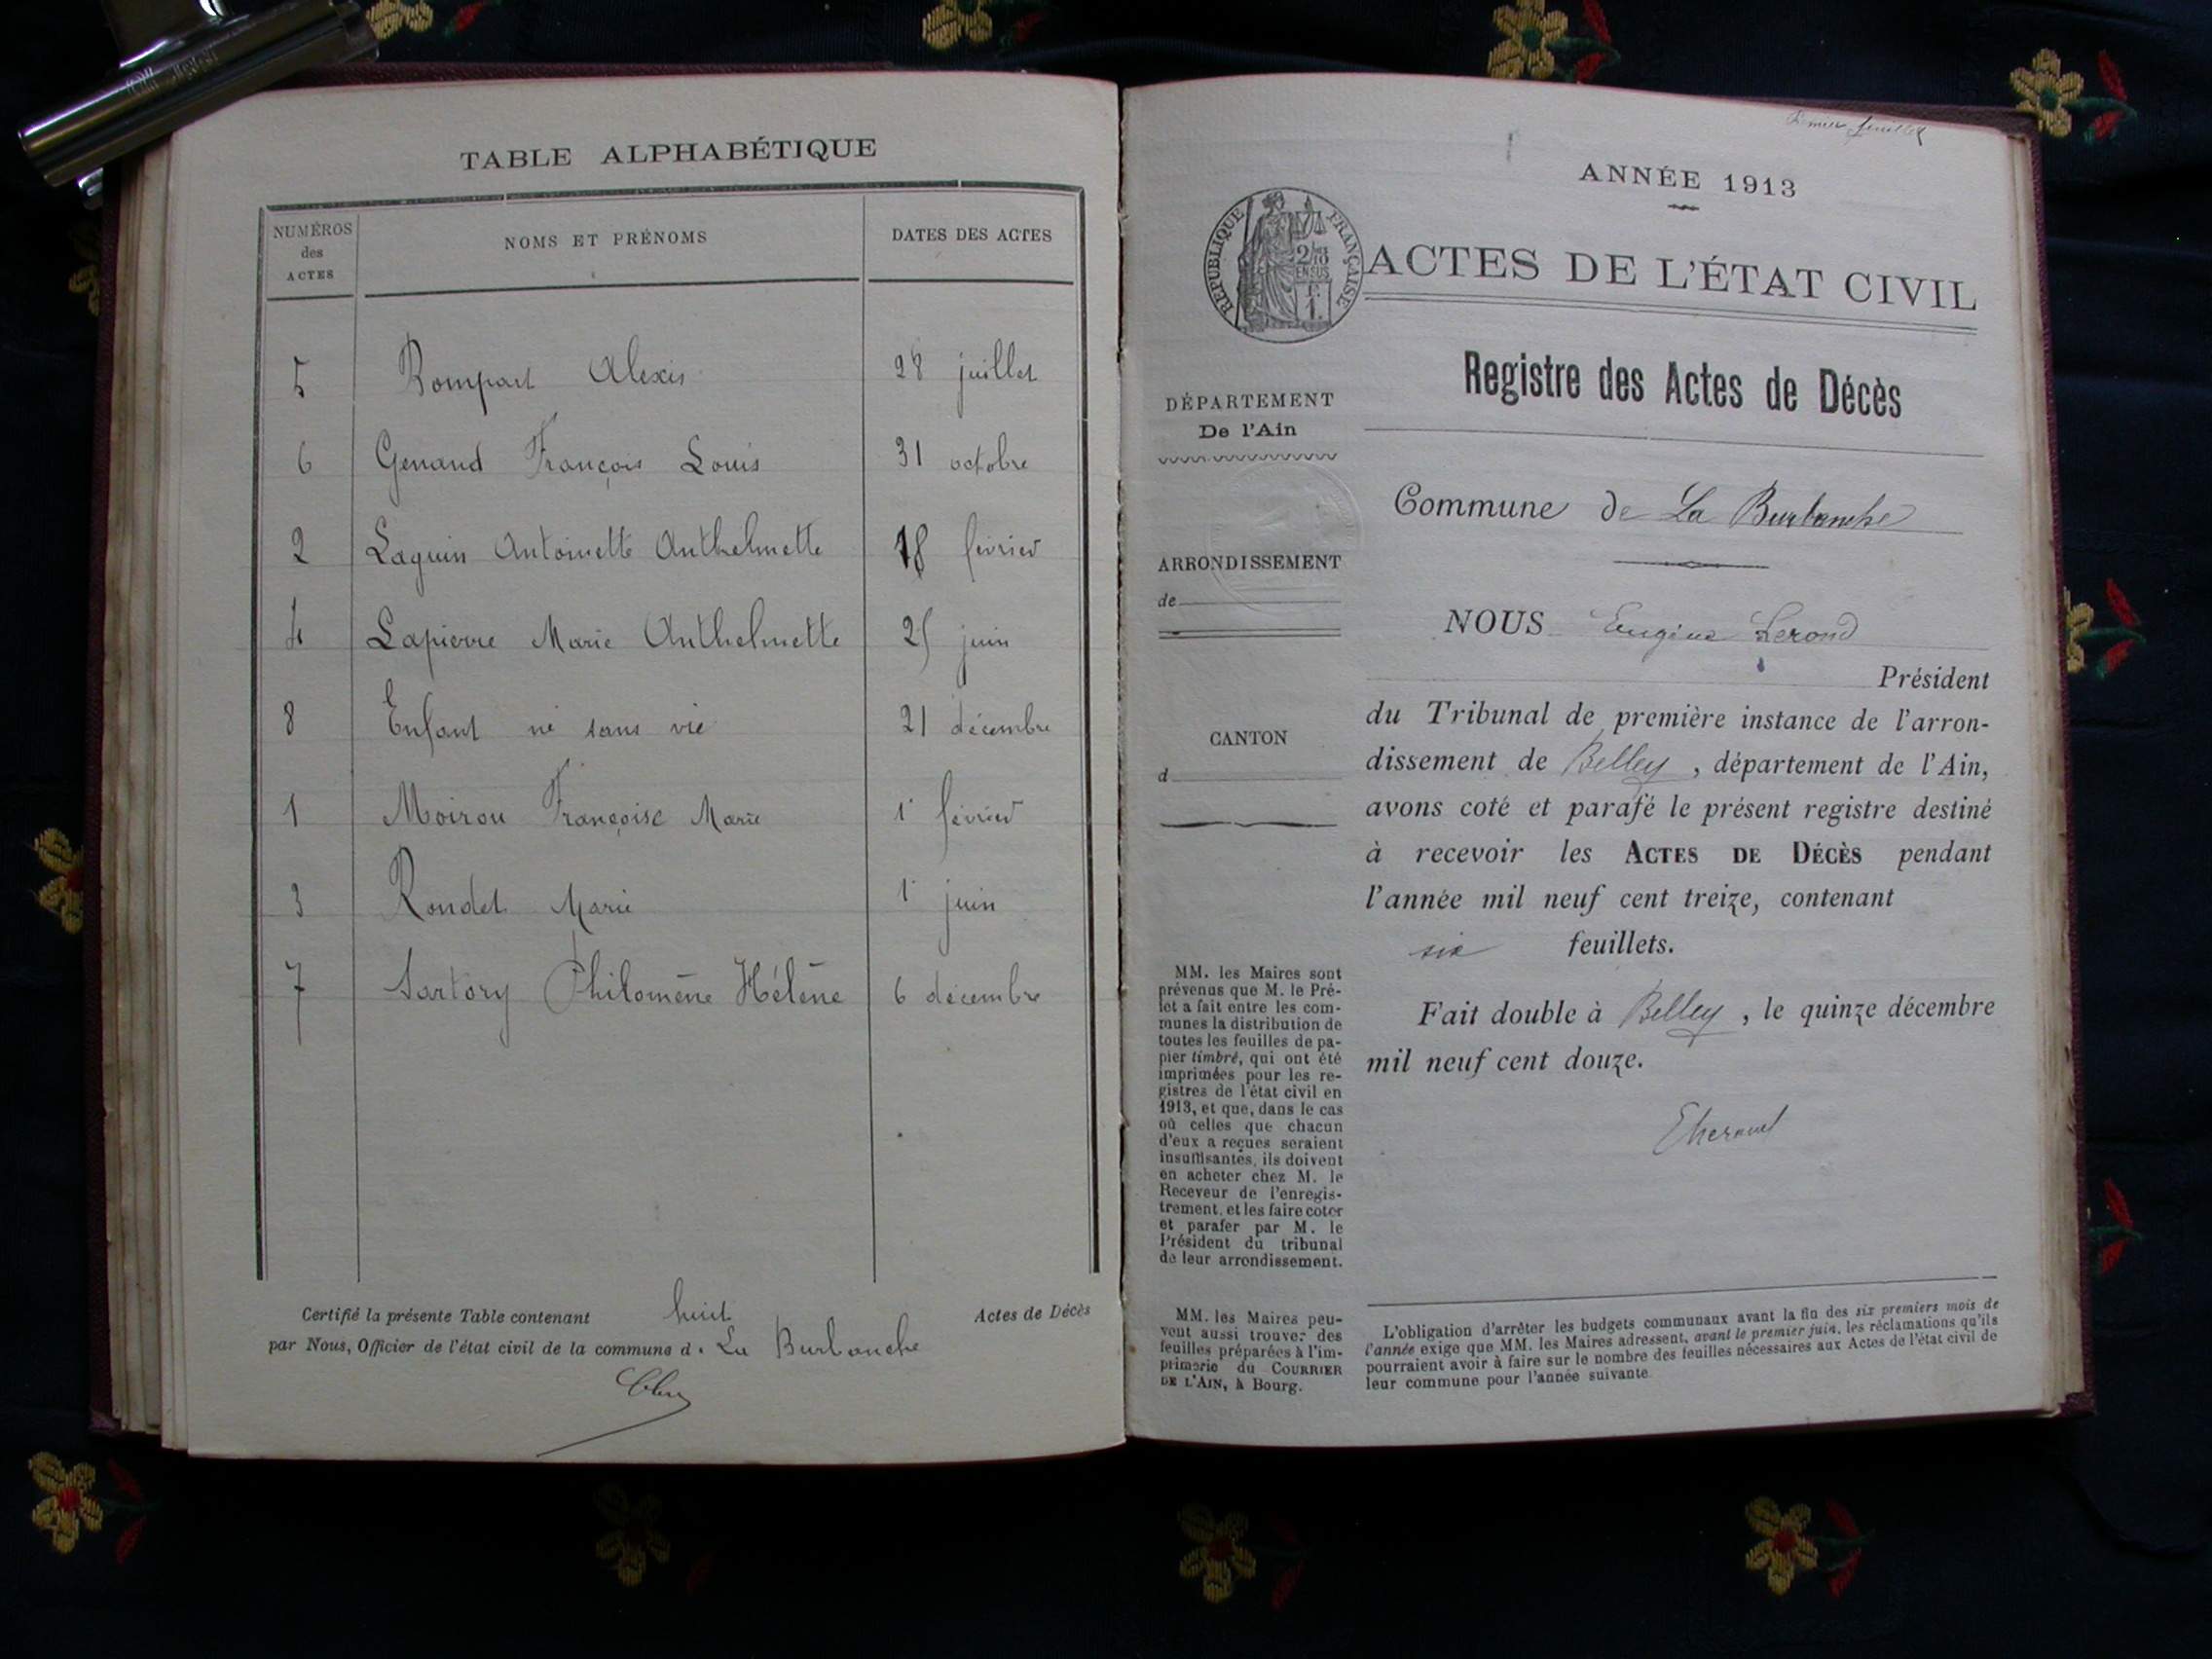 TABLE ALPHABÉTIQUE
NUMÉROS
des
ACTES
NOMS ET PRÉNOMS
DATES DES ACTES
5 Bompart Alexis 28 juillet
6 Genand François Louis 31 octobre
2 Laguin Antoinette Anthelmette 18 février
4 Lapierre Marie Anthelmette 25 juin
8 Enfant né sans vie 21 décembre
1 Moirou Françoise Marie 1er février
3 Rondet Marie 1er juin
7 Sartory Philomène Hélène 6 décembre
Certifié la présente Table contenant huit Actes de Décès
par Nous, Officier de l'état civil de la commune d. La Burbanche
feuillet
ANNÉE 1913
RÉPUBLIQUE FRANÇAISE
ACTES DE L'ÉTAT CIVIL
Registre des Actes de Décès
DÉPARTEMENT
De l'Ain
ARRONDISSEMENT
de
CANTON
d
MM. les Maires sont
prévenus que M. le Pré-
fet a fait entre les com-
munes la distribution de
toutes les feuilles de pa-
pier timbré, qui ont été
imprimées pour les re-
gistres de l'état civil en
1913, et que, dans le cas
où celles que chacun
d'eux a reçues seraient
insuffisantes, ils doivent
en acheter chez M. le
Receveur de l'enregis-
trement, et les faire coter
et parafer par M. le
Président du tribunal
de leur arrondissement.
MM. les Maires peu-
vent aussi trouver des
feuilles préparées à l'im-
primerie du COURRIER
DE L'AIN, à Bourg.
Commune de La Burbanche
NOUS Eugène Lerond
Président
du Tribunal de première instance de l'arron-
dissement de Belley, département de l'Ain,
avons coté et parafé le présent registre destiné
à recevoir les ACTES DE DÉCÈS pendant
l'année mil neuf cent treize, contenant
six feuillets.
Fait double à Belley, le quinze décembre
mil neuf cent douze.
L'obligation d'arrêter les budgets communaux avant la fin des six premiers mois de
l'année exige que MM. les Maires adressent, avant le premier juin, les réclamations qu'ils
pourraient avoir à faire sur le nombre des feuilles nécessaires aux Actes de l'état civil de
leur commune pour l'année suivante.